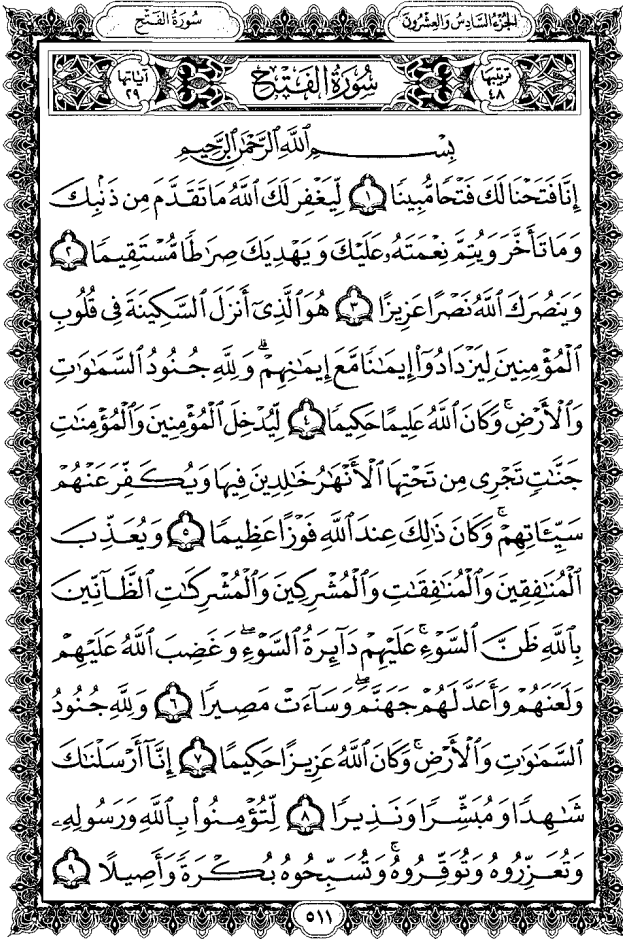 الجزء السادس والعشرون
سورة الفتح
ترتيبها ٤٨
سُورَةُ الفَتْحِ
آياتها ٢٩
بِسْمِ ٱللَّهِ ٱلرَّحْمَٰنِ ٱلرَّحِيمِ
إِنَّا فَتَحْنَا لَكَ فَتْحًا مُّبِينًا ١ لِّيَغْفِرَ لَكَ ٱللَّهُ مَا تَقَدَّمَ مِن ذَنۢبِكَ
وَمَا تَأَخَّرَ وَيُتِمَّ نِعْمَتَهُۥ عَلَيْكَ وَيَهْدِيَكَ صِرَٰطًا مُّسْتَقِيمًا ٢
وَيَنصُرَكَ ٱللَّهُ نَصْرًا عَزِيزًا ٣ هُوَ ٱلَّذِىٓ أَنزَلَ ٱلسَّكِينَةَ فِى قُلُوبِ
ٱلْمُؤْمِنِينَ لِيَزْدَادُوٓا۟ إِيمَٰنًا مَّعَ إِيمَٰنِهِمْ ۗ وَلِلَّهِ جُنُودُ ٱلسَّمَٰوَٰتِ
وَٱلْأَرْضِ ۚ وَكَانَ ٱللَّهُ عَلِيمًا حَكِيمًا ٤ لِّيُدْخِلَ ٱلْمُؤْمِنِينَ وَٱلْمُؤْمِنَٰتِ
جَنَّٰتٍ تَجْرِى مِن تَحْتِهَا ٱلْأَنْهَٰرُ خَٰلِدِينَ فِيهَا وَيُكَفِّرَ عَنْهُمْ
سَيِّـَٔاتِهِمْ ۚ وَكَانَ ذَٰلِكَ عِندَ ٱللَّهِ فَوْزًا عَظِيمًا ٥ وَيُعَذِّبَ
ٱلْمُنَٰفِقِينَ وَٱلْمُنَٰفِقَٰتِ وَٱلْمُشْرِكِينَ وَٱلْمُشْرِكَٰتِ ٱلظَّآنِّينَ
بِٱللَّهِ ظَنَّ ٱلسَّوْءِ ۚ عَلَيْهِمْ دَآئِرَةُ ٱلسَّوْءِ ۖ وَغَضِبَ ٱللَّهُ عَلَيْهِمْ
وَلَعَنَهُمْ وَأَعَدَّ لَهُمْ جَهَنَّمَ ۖ وَسَآءَتْ مَصِيرًا ٦ وَلِلَّهِ جُنُودُ
ٱلسَّمَٰوَٰتِ وَٱلْأَرْضِ ۚ وَكَانَ ٱللَّهُ عَزِيزًا حَكِيمًا ٧ إِنَّآ أَرْسَلْنَٰكَ
شَٰهِدًا وَمُبَشِّرًا وَنَذِيرًا ٨ لِّتُؤْمِنُوا۟ بِٱللَّهِ وَرَسُولِهِۦ
وَتُعَزِّرُوهُ وَتُوَقِّرُوهُ ۚ وَتُسَبِّحُوهُ بُكْرَةً وَأَصِيلًا ٩
٥١١